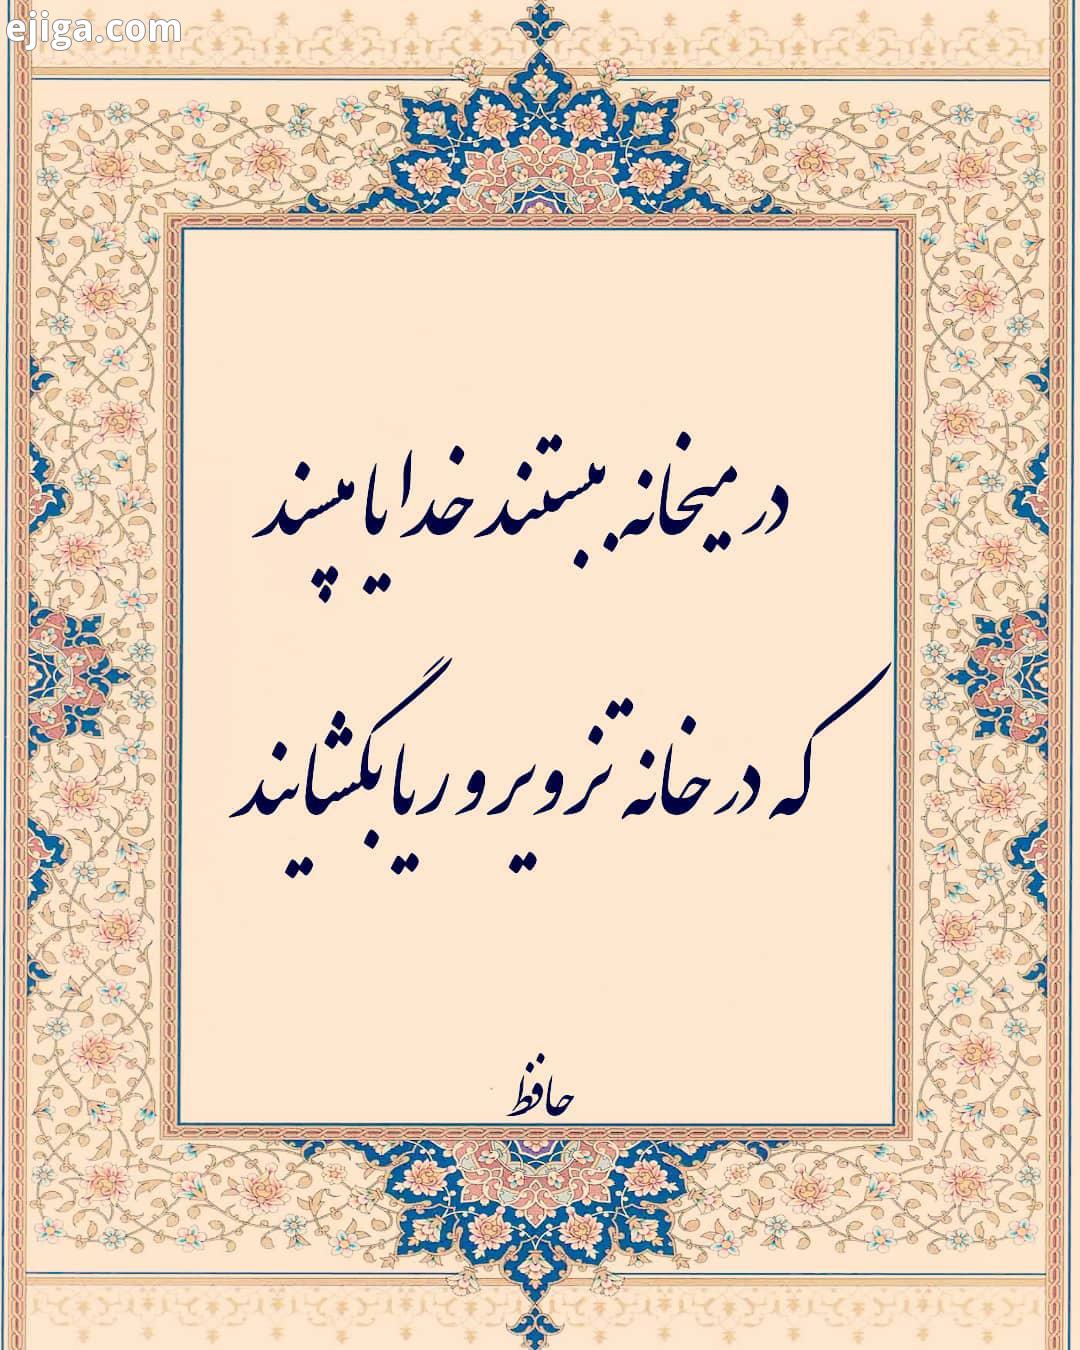 ejiga.com
در میخانه ببستند خدایا مپسند
که در خانه تزویر و ریا بگشایند
حافظ